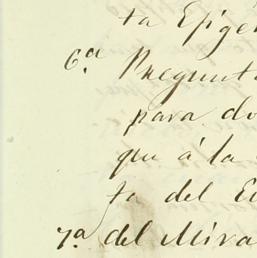 ta Epigé
6.ª Pregunta
para do
que á la
ta del E
7.ª del Mira